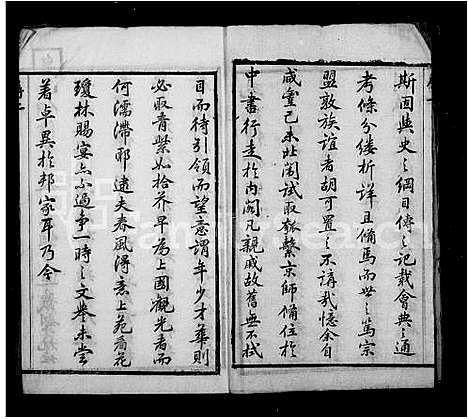 斯固與史之綱目傳之記載會典之通
考條分縷析詳且備焉而世之篤宗
盟敦族誼者胡可置之不講哉憶余自
咸豐己未北闈試取瓻繫京師備位於
中書行走於內閣凡親戚故舊無不拭
目而待引領而望意謂年少才華則
必取青紫如拾芥早為上國觀光者而
何濡滯耶逮夫春風得意上苑看花
瓊林賜宴亦不過爭一時之文舉未嘗
著卓異於邦家耳乃今
FamilySearch